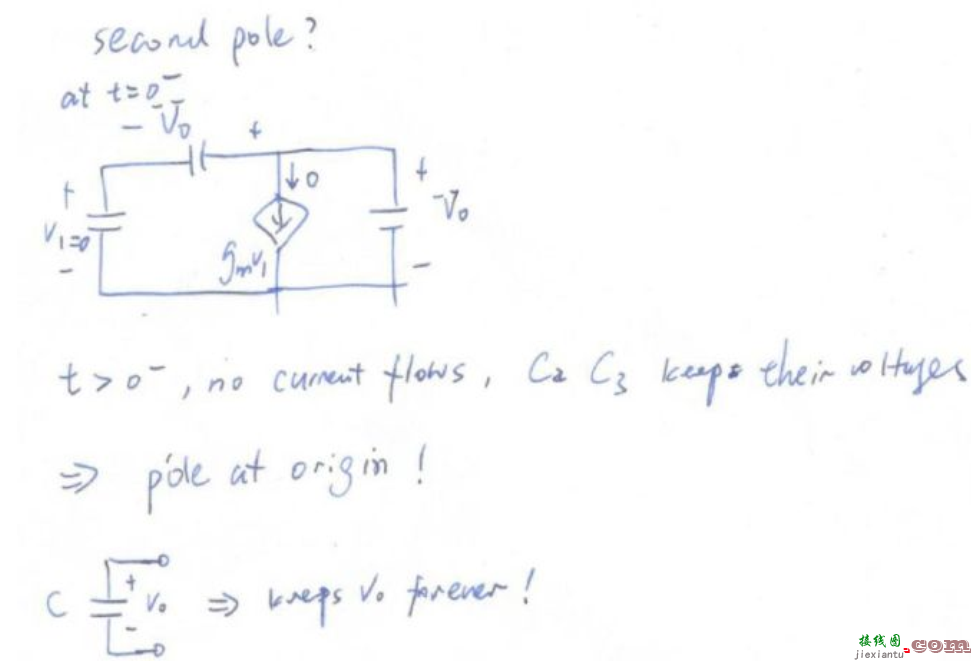 second pole?
at t=0⁻
- V₀ +
+
V₁=0
-
↓0
gmV₁
+
V₀
-
t>0⁻, no current flows, C₂ C₃ keeps their voltages
⇒ pole at origin!
C
+
V₀
-
⇒ keeps V₀ forever!
接线图
jiexiantu
.com